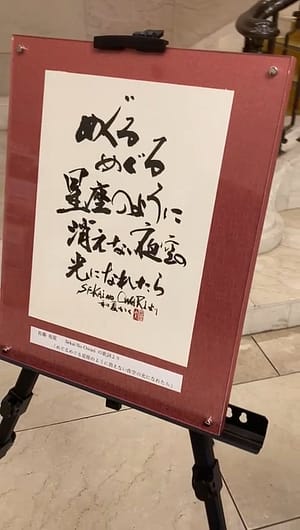 めぐる
めぐる
星座のように
消えない夜空の
光になれたら
SEKAI no OWARI より
Sekai No Owari の歌詞より
「めぐるめぐる星座のように消えない夜空の光になれたら」